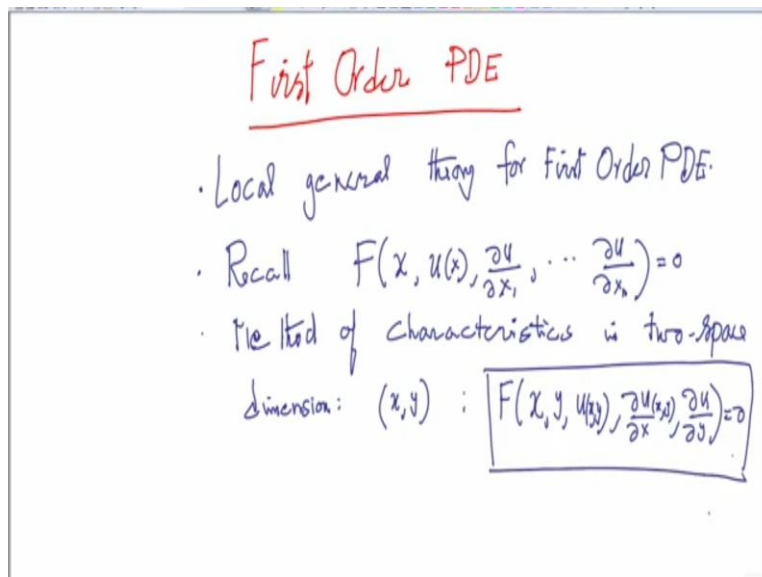 First Order PDE
· Local general theory for First Order PDE.
· Recall F(x, u(x), ∂u/∂x₁, ⋯ ∂u/∂xₙ) = 0
· Method of characteristics in two-space
dimension: (x, y) : F(x, y, u(x,y), ∂u/∂x(x,y), ∂u/∂y) = 0